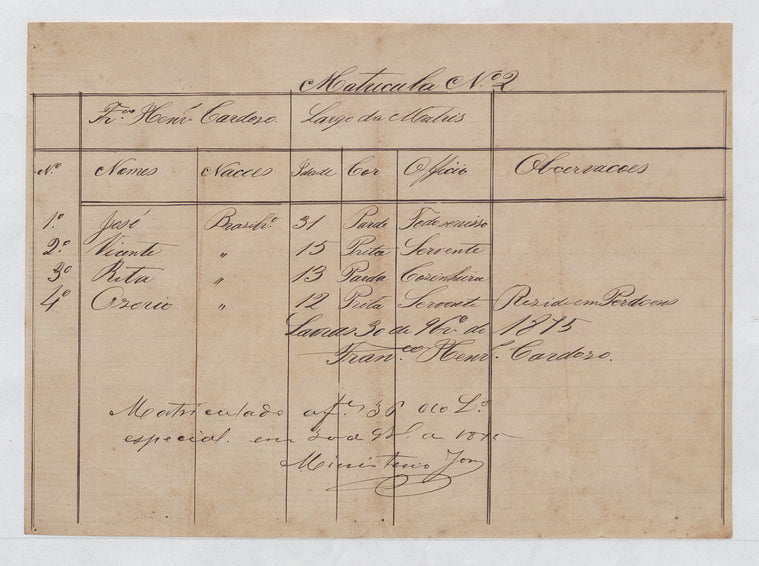 Matricula N.º 2
Fr.co Henr.e Cardozo. Largo da Matris
N.º Nomes Nacoes Idade Cor Officio Obcervacoes
1.º José Brasilr.º 31 Parda Todo servisso
2.º Vicente " 15 Preta Servente
3º Rita " 13 Parda Cozinheira
4.º Ozorio " 12 Preta Servente Rezide em Perdoens
Lavras 30 de 9br.º de 1875
Fran.co Henr.e Cardozo.
Matriculado a f. do L.º
especial. em